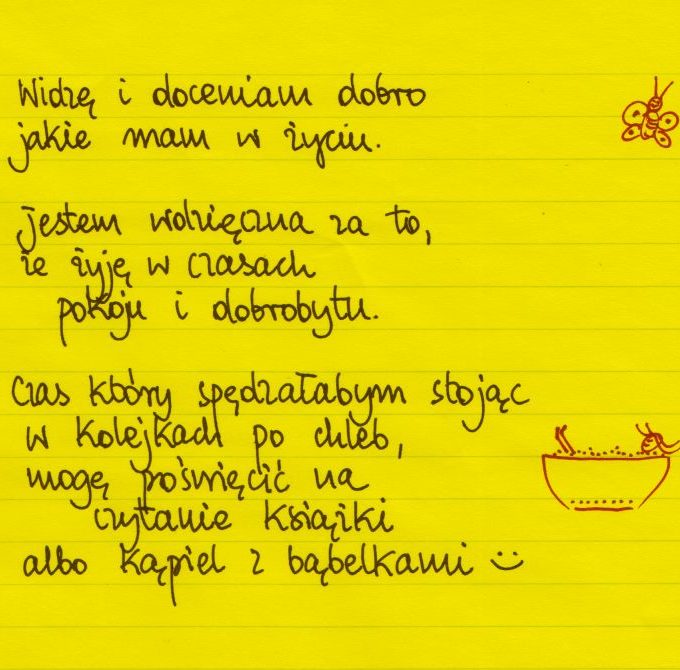 Widzę i doceniam dobro
jakie mam w życiu.
jestem wdzięczna za to,
że żyję w czasach
pokoju i dobrobytu.
Czas który spędzałabym stojąc
w kolejkach po chleb,
mogę poświęcić na
czytanie książki
albo kąpiel z bąbelkami :)